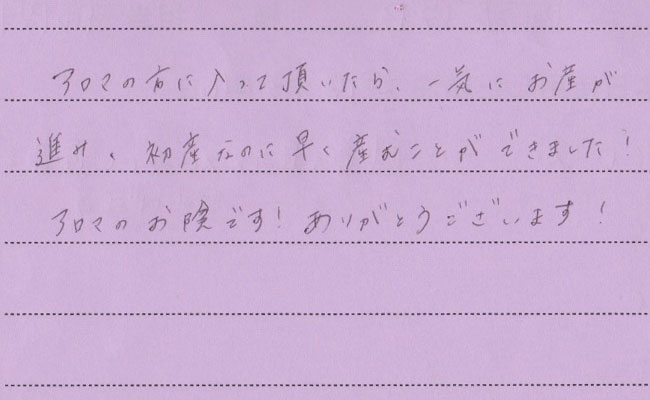 アロマの方に入って頂いたら、一気にお産が
進み、初産なのに早く産むことができました!
アロマのお陰です!ありがとうございます!